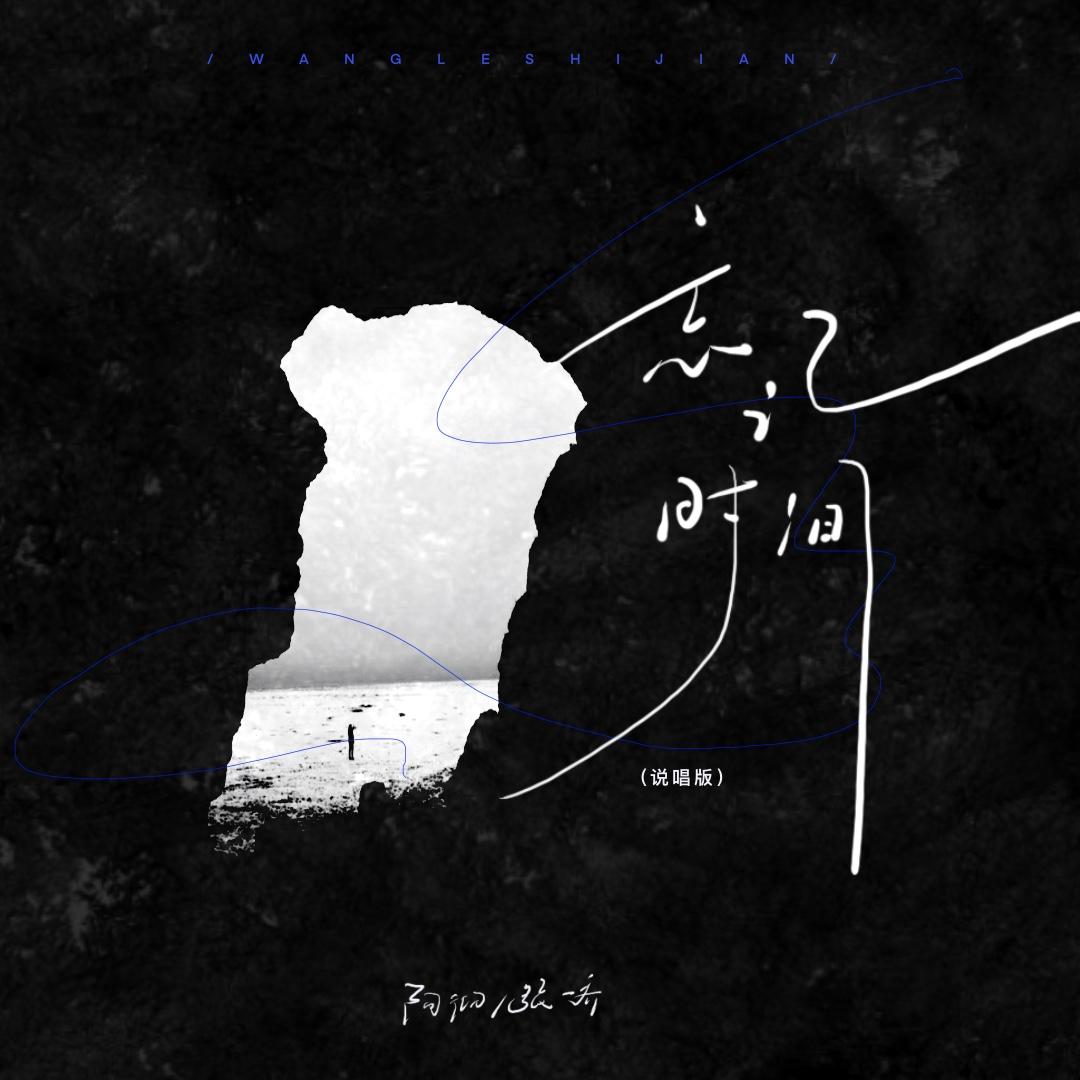 / W A N G L E S H I J I A N /
忘记
时间
(说唱版)